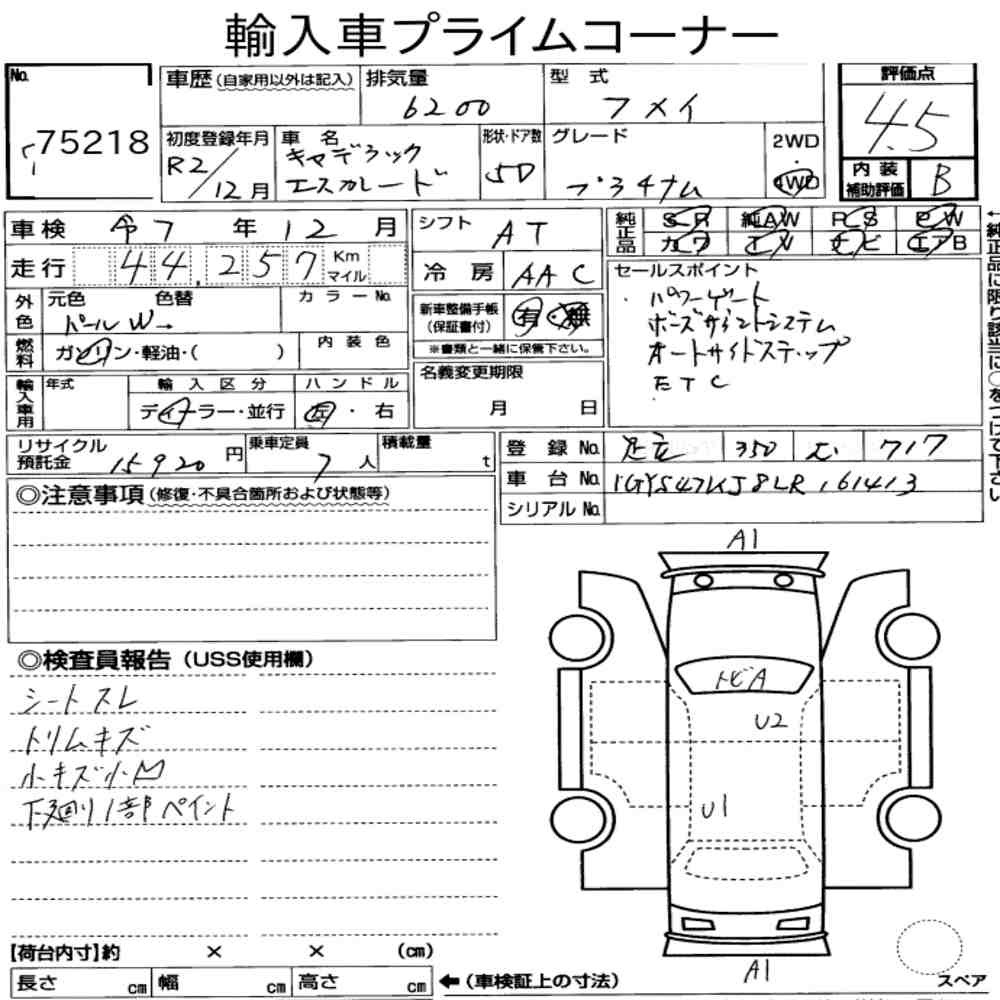 輸入車プライムコーナー
No. 75218
車歴(自家用以外は記入)
排気量 6200
型式 フメイ
評価点 4.5
初度登録年月 R2/12月
車名 キャデラック エスカレード
形状・ドア数 5D
グレード プラチナム
2WD
4WD
内装補助評価 B
車検 令7年12月
シフト AT
純正品 SR 純AW PS PW
カワ TV ナビ エアB
走行 44,257 Km マイル
冷房 AAC
セールスポイント
・パワーゲート
ボーズサウンドシステム
オートサイドステップ
ETC
外色 元色 パールW→ 色替
カラーNo.
新車整備手帳(保証書付) 有・無
※書類と一緒に保管下さい。
燃料 ガソリン・軽油・( )
内装色
名義変更期限 月 日
輸入車用 年式
輸入区分 ディーラー・並行
ハンドル 左・右
←純正品に限り該当に○をつけて下さい
リサイクル預託金 15920円
乗車定員 7人
積載量 t
登録No. 足立 350 717
車台No. 1GYS47KJ8LR161413
シリアルNo.
◎注意事項(修復・不具合箇所および状態等)
A1
◎検査員報告(USS使用欄)
シートスレ
トリムキズ
小キズ小凹
下廻り1部ペイント
トビA
U2
U1
A1
【荷台内寸】約 × × (cm)
長さ cm 幅 cm 高さ cm ←(車検証上の寸法)
スペア